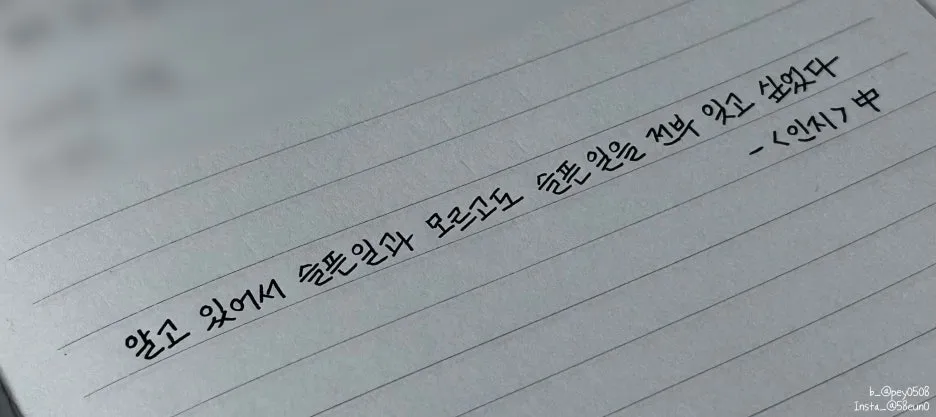 알고 있어서 슬픈일과 모르고도 슬픈일을 전부 잊고 싶었다
- <인지> 中
b_@pey0508
Insta_@58eun0